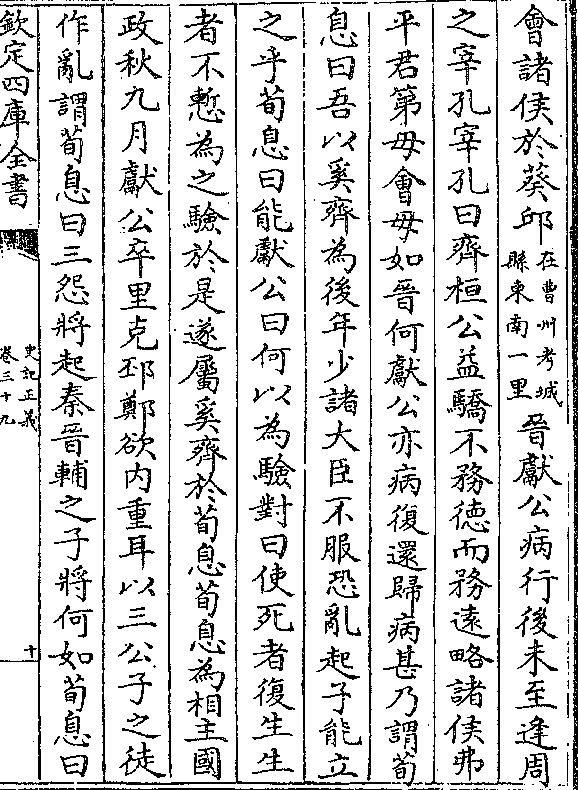 會諸侯於葵邱在曹州考城縣東南一里晉獻公病行後未至逢周
之宰孔宰孔曰齊桓公益驕不務德而務遠略諸侯弗
平君第毋會毋如晉何獻公亦病復還歸病甚乃謂荀
息曰吾以奚齊為後年少諸大臣不服恐亂起子能立
之乎荀息曰能獻公曰何以為驗對曰使死者復生生
者不慙為之驗於是遂屬奚齊於荀息荀息為相主國
政秋九月獻公卒里克邳鄭欲内重耳以三公子之徒
作亂謂荀息曰三怨將起秦晉輔之子將何如荀息曰
欽定四庫全書
史記正義
卷三十九
十